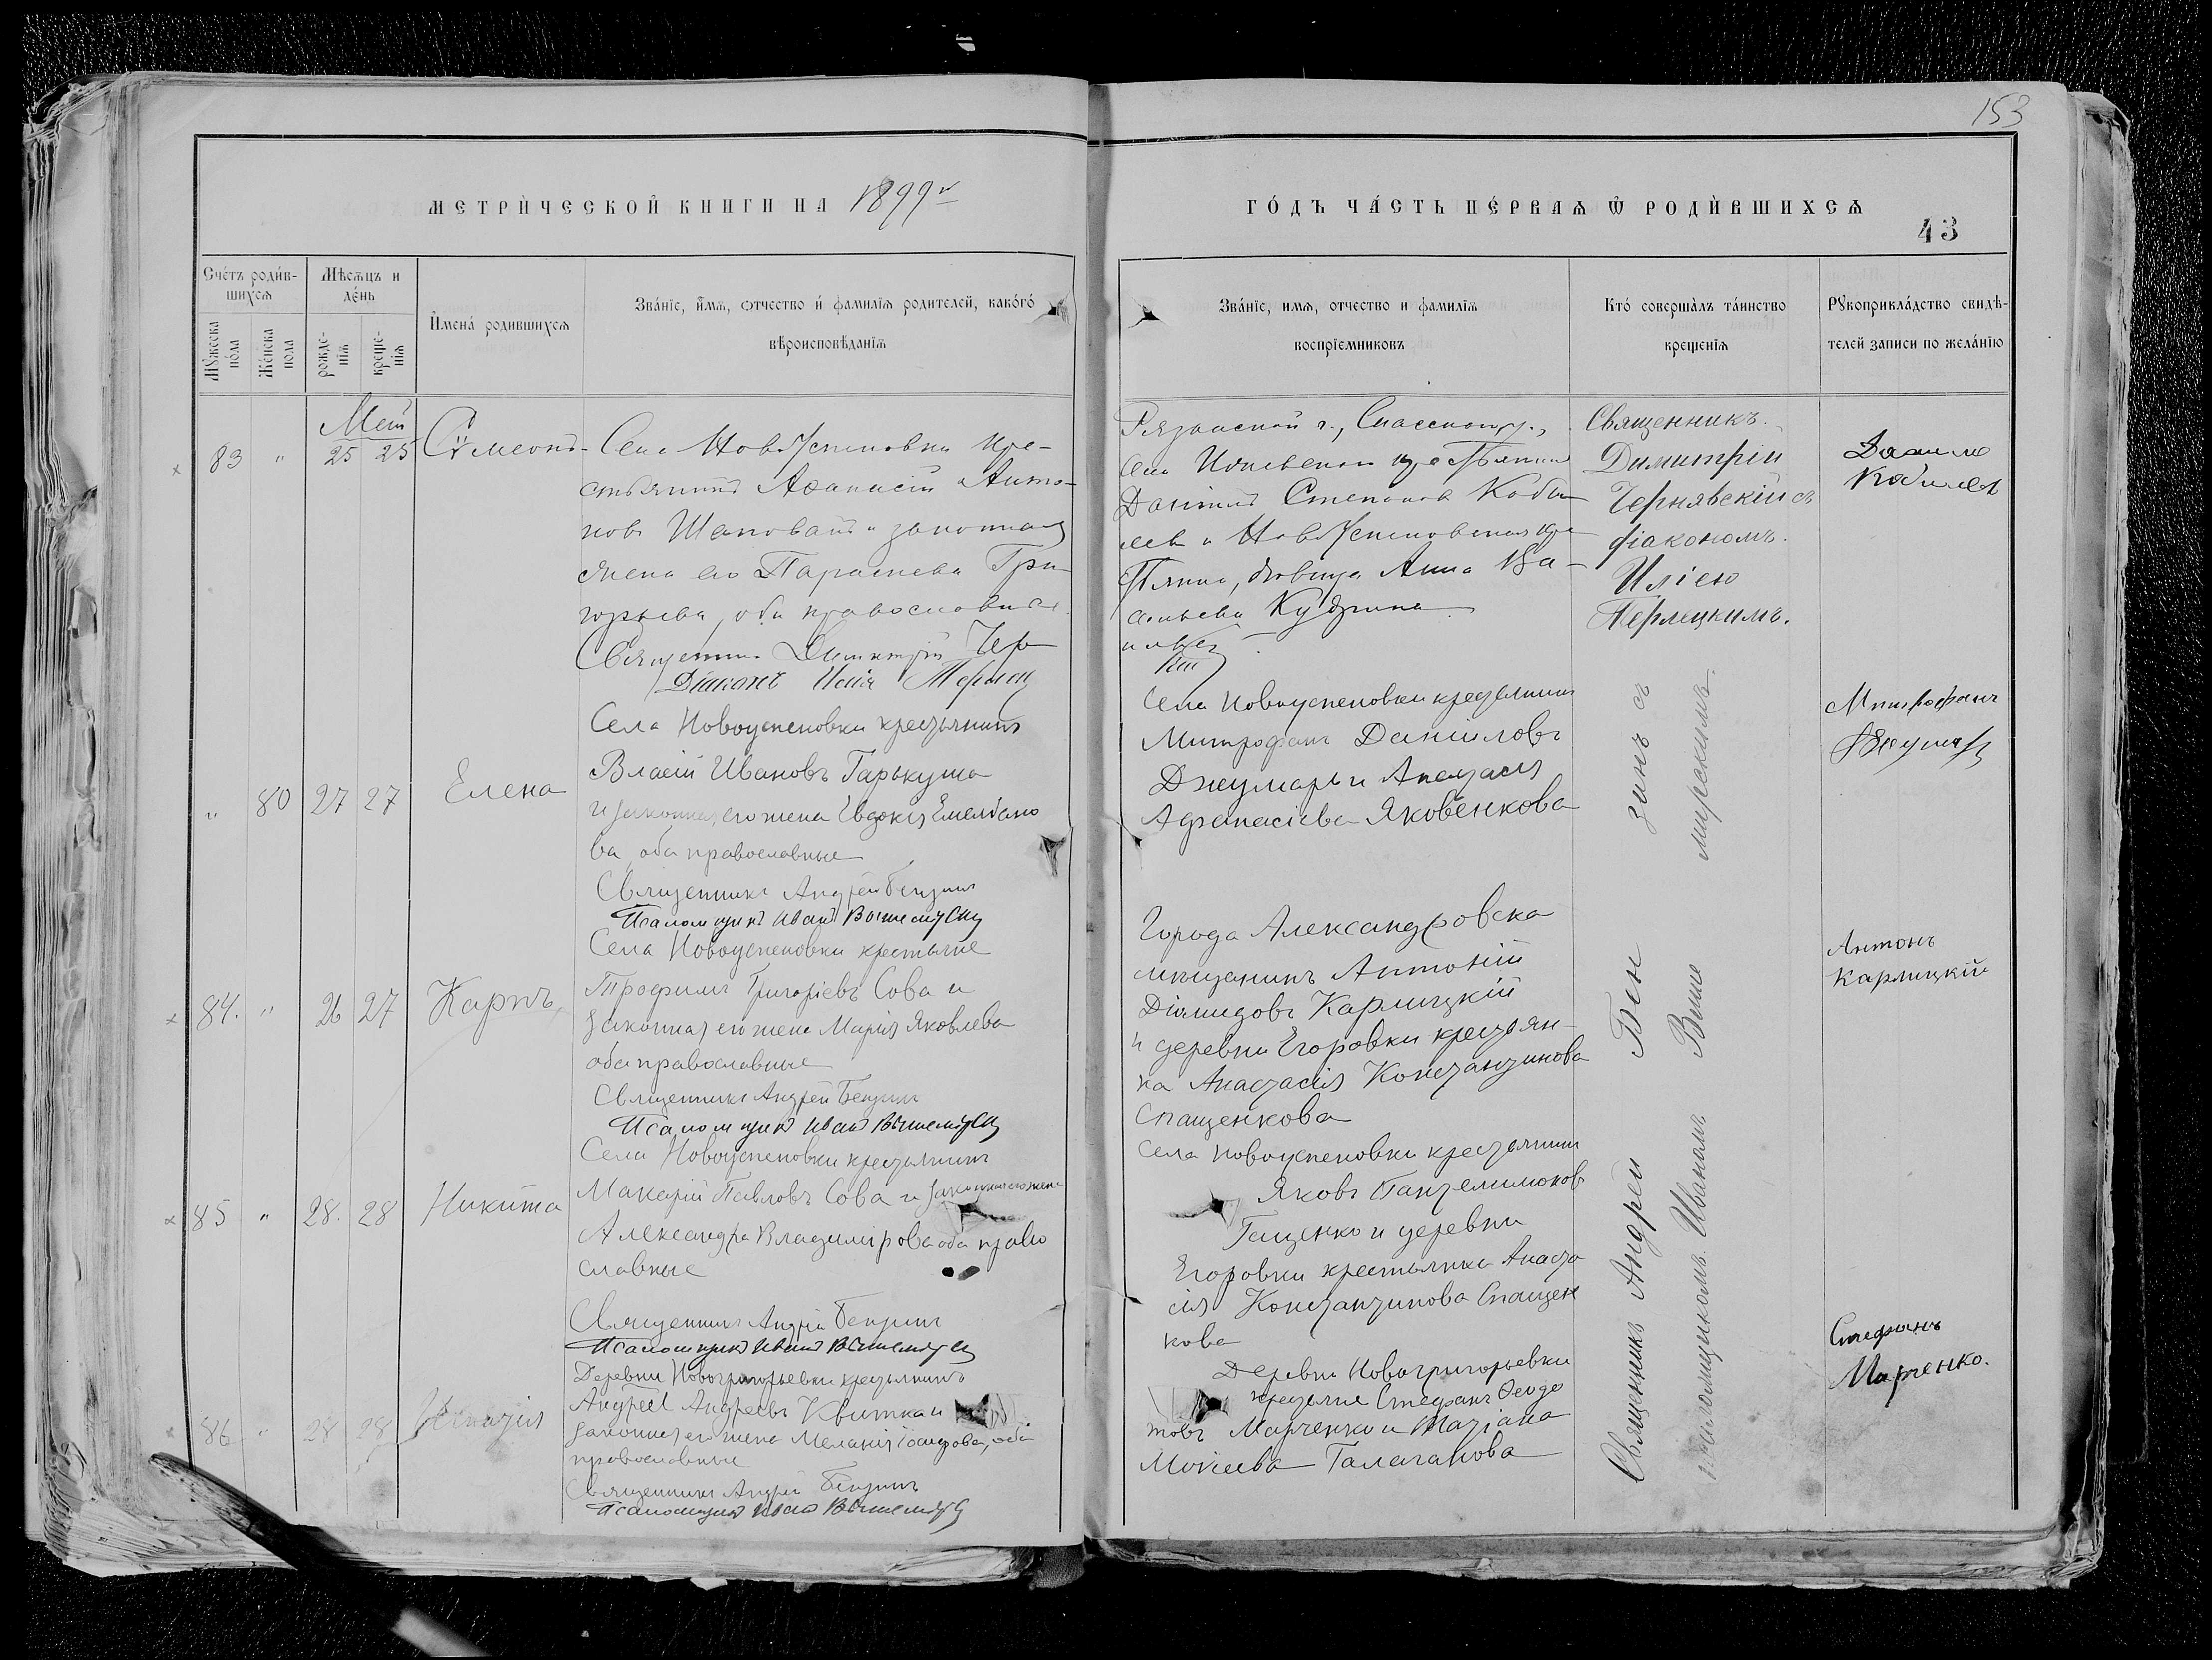 153
МЕТРИ́ЧЕСКОЙ КНИГИ НА 1899 г.
ГО́ДЪ ЧА́СТЬ ПЕ́РВАѦ Ѡ РОДИ́ВШИХСѦ
43
Сче́тъ роди́в-
шихсѧ
Мѣсѧцъ и
де́нь
Мꙋжеска
по́ла
Же́нска
пола
рожде-
нїѧ
креще-
нїѧ
И҆мена́ родившихсѧ
Зва́нїе, и҆́мѧ, ѻтчество и҆ фамилїѧ родителей, како́гѡ
вѣроисповѣданїѧ
Зва́нїе, имѧ, отчество и фамилїѧ
воспрїемниковъ
Кто́ соверша̀лъ та́инство
крещенїѧ
Рꙋкоприкла́дство свидѣ-
телей записи по жела́нїю
Май
83 " 25 25
Сѵмеонъ
Села НовоУспеновки кре-
стьянинъ Аѳанасій Анто-
новъ Шаповалъ и законная
жена его Параскева Гри-
горьева, оба православные.
Священникъ Димитрій Чер
Діаконъ Илія
Рязанской г., Спасскаго у.,
села крестьянинъ
Даніилъ Степановъ Кобы-
левъ и НовоУспеновская кре
стьянка, девица Анна Ва-
сильева
Священникъ
Димитрій
Чернявскій съ
діакономъ
Иліею
Терлецкимъ.
Данило
Кобилев
" 80 27 27
Елена
Села Новоуспеновки крестьянинъ
Власій Ивановъ Гаркуша
и законная его жена Евдокія Емельяно
ва, оба православные
Священникъ Андрей Бензинъ
Псаломщикъ Иванъ
Села Новоуспеновки крестьянинъ
Митрофанъ Даниловъ
Джумаръ и Анастасія
Афанасіева Яковенкова
Митрофанъ
84. " 26 27
Карпъ
Села Новоуспеновки крестьяне
Трофимъ Григорієвъ Сова и
законная его жена Марія Яковлева
оба православные
Священникъ Андрей Бензинъ
Псаломщикъ Иванъ
Города Александровска
мещанинъ Антоній
Діомидовъ Карлицкій
и деревни Егоровки крестьян-
ка Анастасія Константинова
Спащенкова
Антонъ
Карлицкій
85 " 28. 28
Никита
Села Новоуспеновки крестьянинъ
Макарій Павловъ Сова и законная его жена
Александра Владимірова оба право
славные
Священникъ Андрей Бензинъ
Псаломщикъ Иванъ
Села Новоуспеновки крестьянинъ
Яковъ Пантелимоновъ
и деревни
Егоровки крестьянка Анаста
сія Константинова Спащен
кова
86 " 28 28
Игнатій
Деревни Новогригорьевки крестьянинъ
Андрей Андреевъ Квитка и
законная его жена Меланія оба
православные
Священникъ Андрей Бензинъ
Псаломщикъ Иванъ
Деревни Новогригорьевки
крестьяне Стефанъ Феодо
товъ Марченко и Татіана
Мокіева Галаганова
Стефанъ
Марченко.
Священникъ Андрей Бензинъ съ
псаломщикомъ Иваномъ Вышемирскимъ.